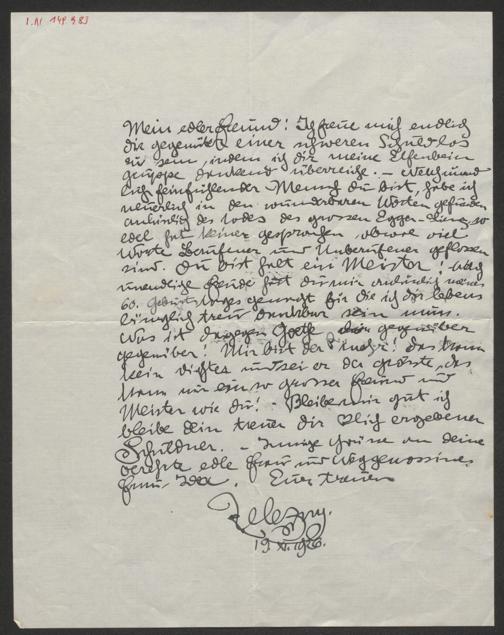 I.N. 149.983
Mein edler Freund! Ich freue mich endlich
die gegenüber einer schweren Schuld los
zu sein, indem ich dir meine Elfenbein
gruppe dankend überreiche. – Welch
feinfühlender Mensch du bist, habe ich
neuerlich in den wunderbaren Worten gefunden
anlässlich des Todes des grossen Egger-Lienz, so
edel hat keiner gesprochen obwol viel
Worte Berufener und Unberufener geflossen
sind. Du bist halt ein Meister! Welch
unendliche Freude hast du mir anlässlich meines
60. Geburtstages gemacht für die ich dir lebens
länglich treu dankbar sein muss.
Was ist dagegen Goethe gegenüber
gegenüber! Mir bist der mehr! das kann
kein Dichter und sei er der grösste, das
kann nur ein so grosser Freund und
Meister wie du! – Bleibe mir gut ich
bleibe dein treuer dir ergebener
Schuldner. – Innige Grüsse an deine
verehrte edle Frau und Weggenossin
Frau Ida. Euer treuer
Zelezny.
19 XI. 1926.